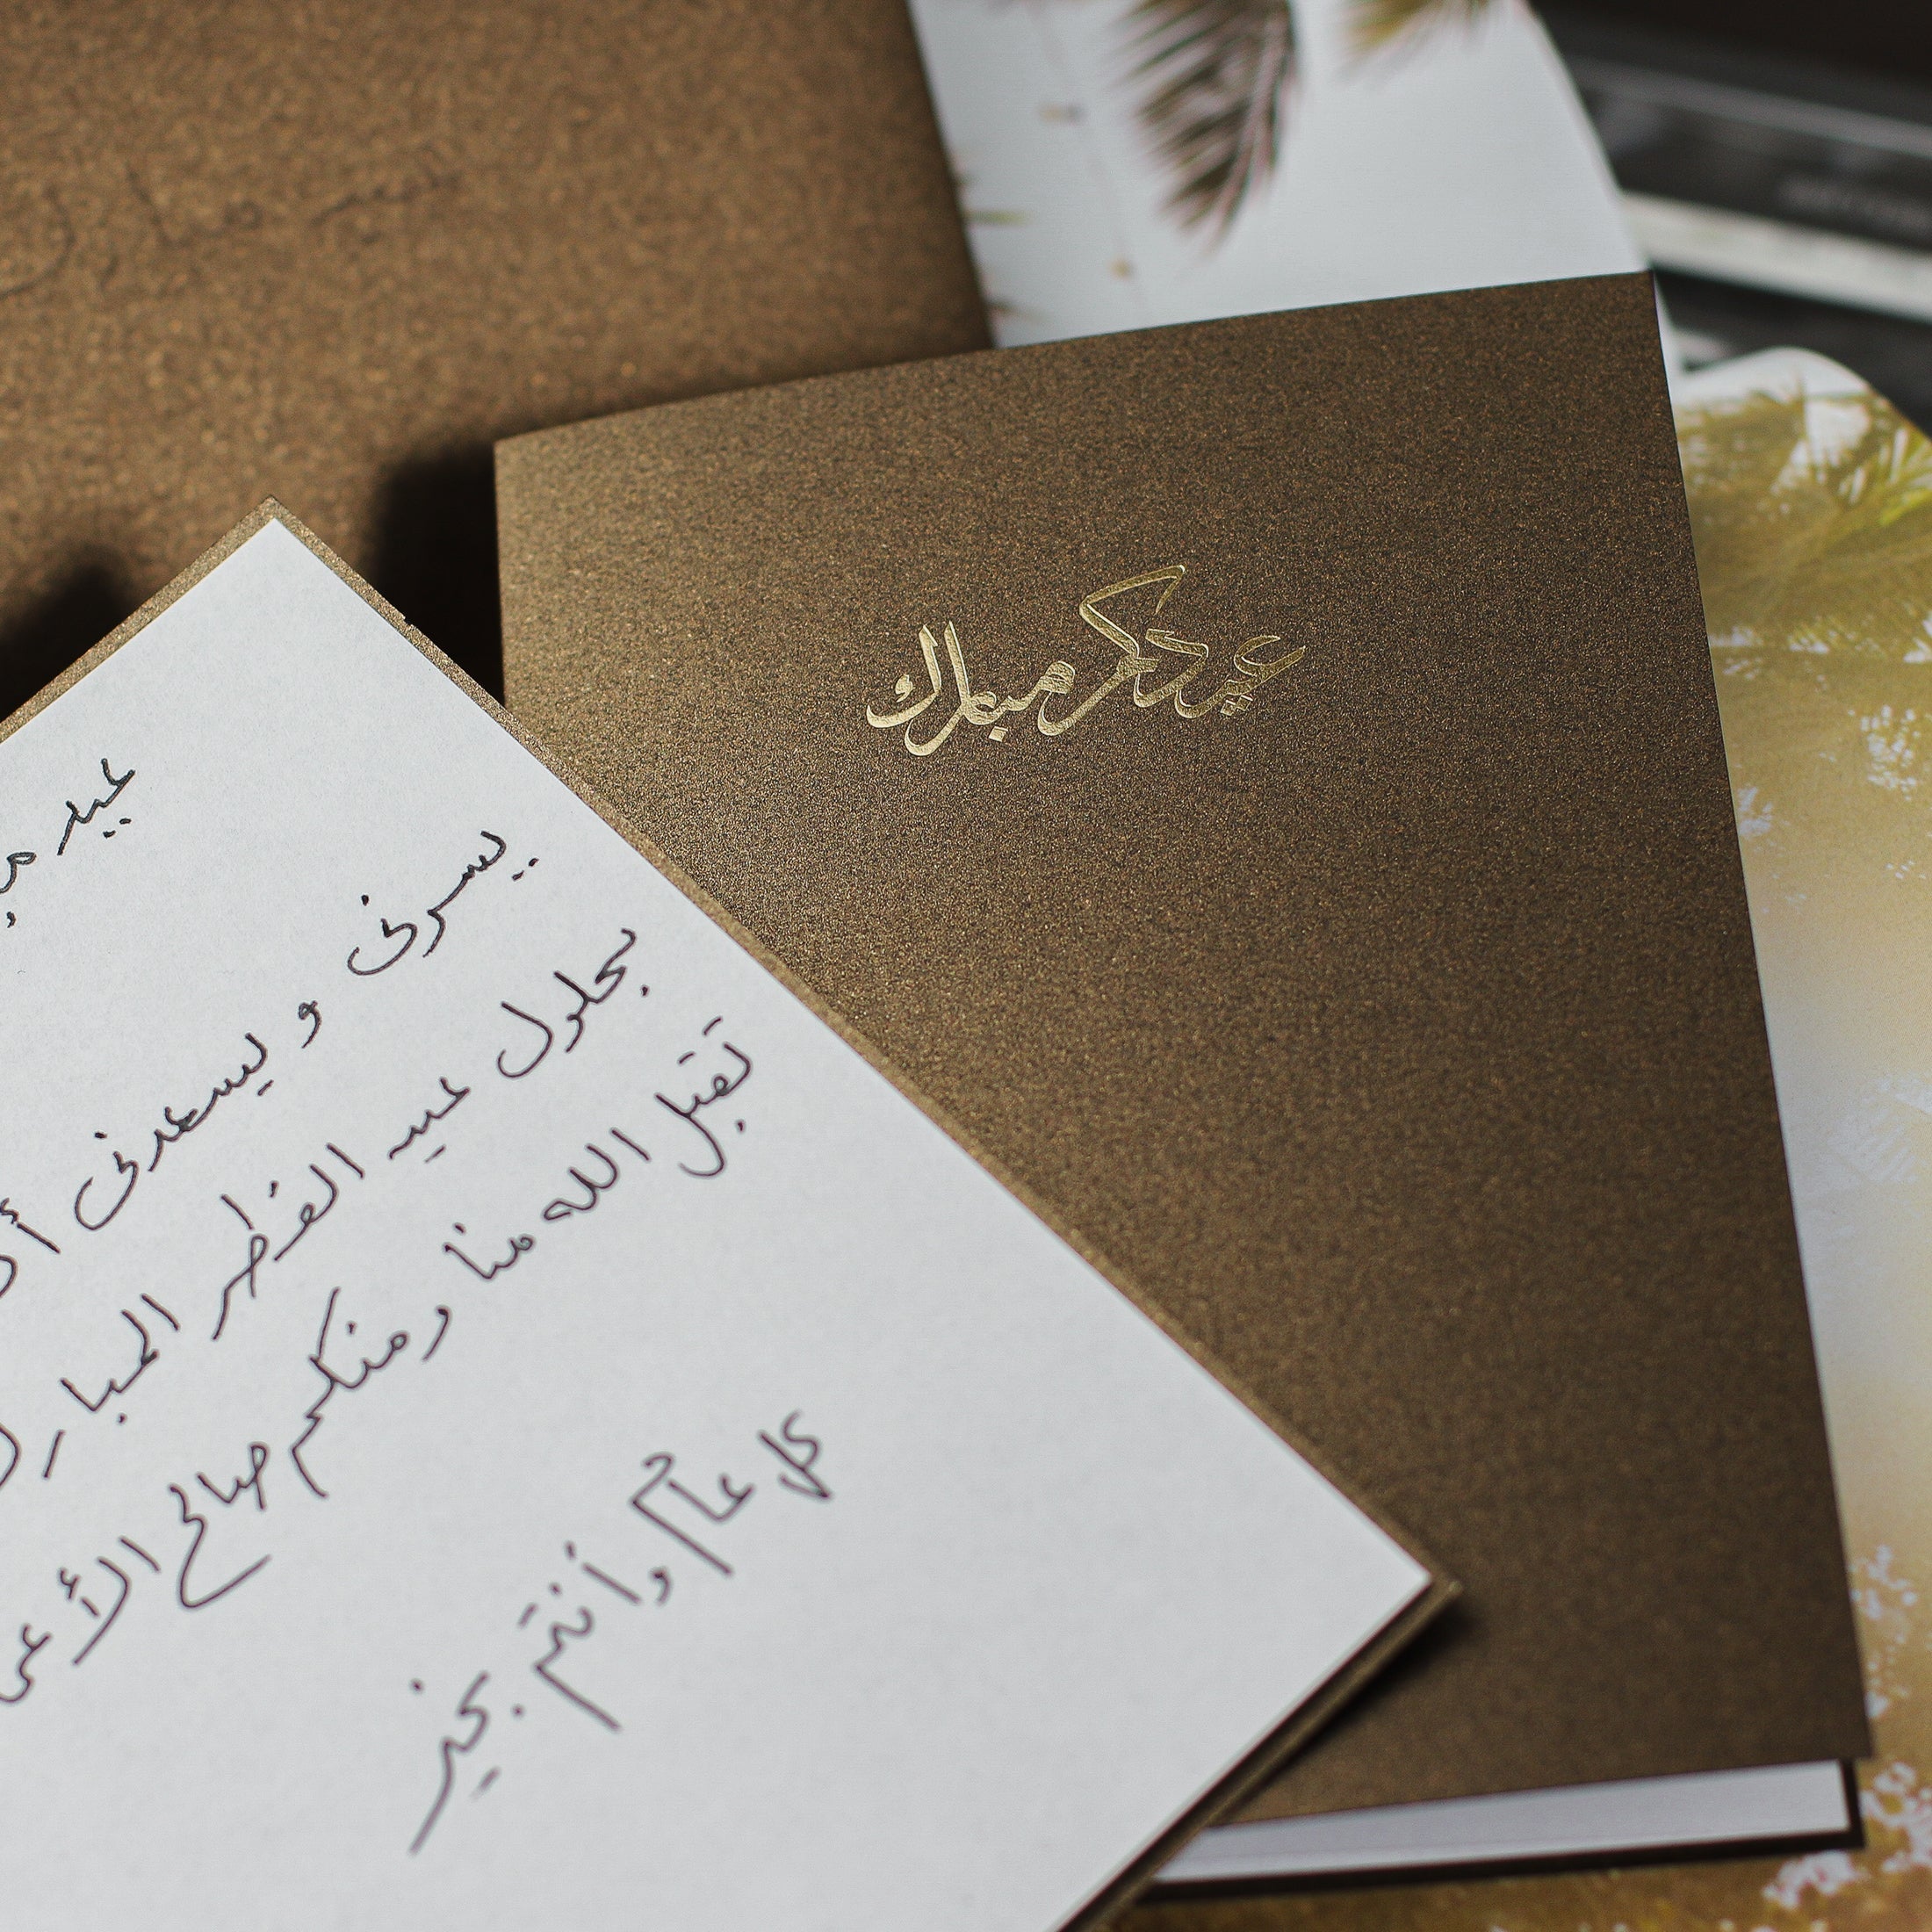 عيدكم مبارك
عيد
يسرني و يسعدني
بحلول عيد الفطر المبارك
تقبل الله منا ومنكم صالح
كل عام وأنتم بخير